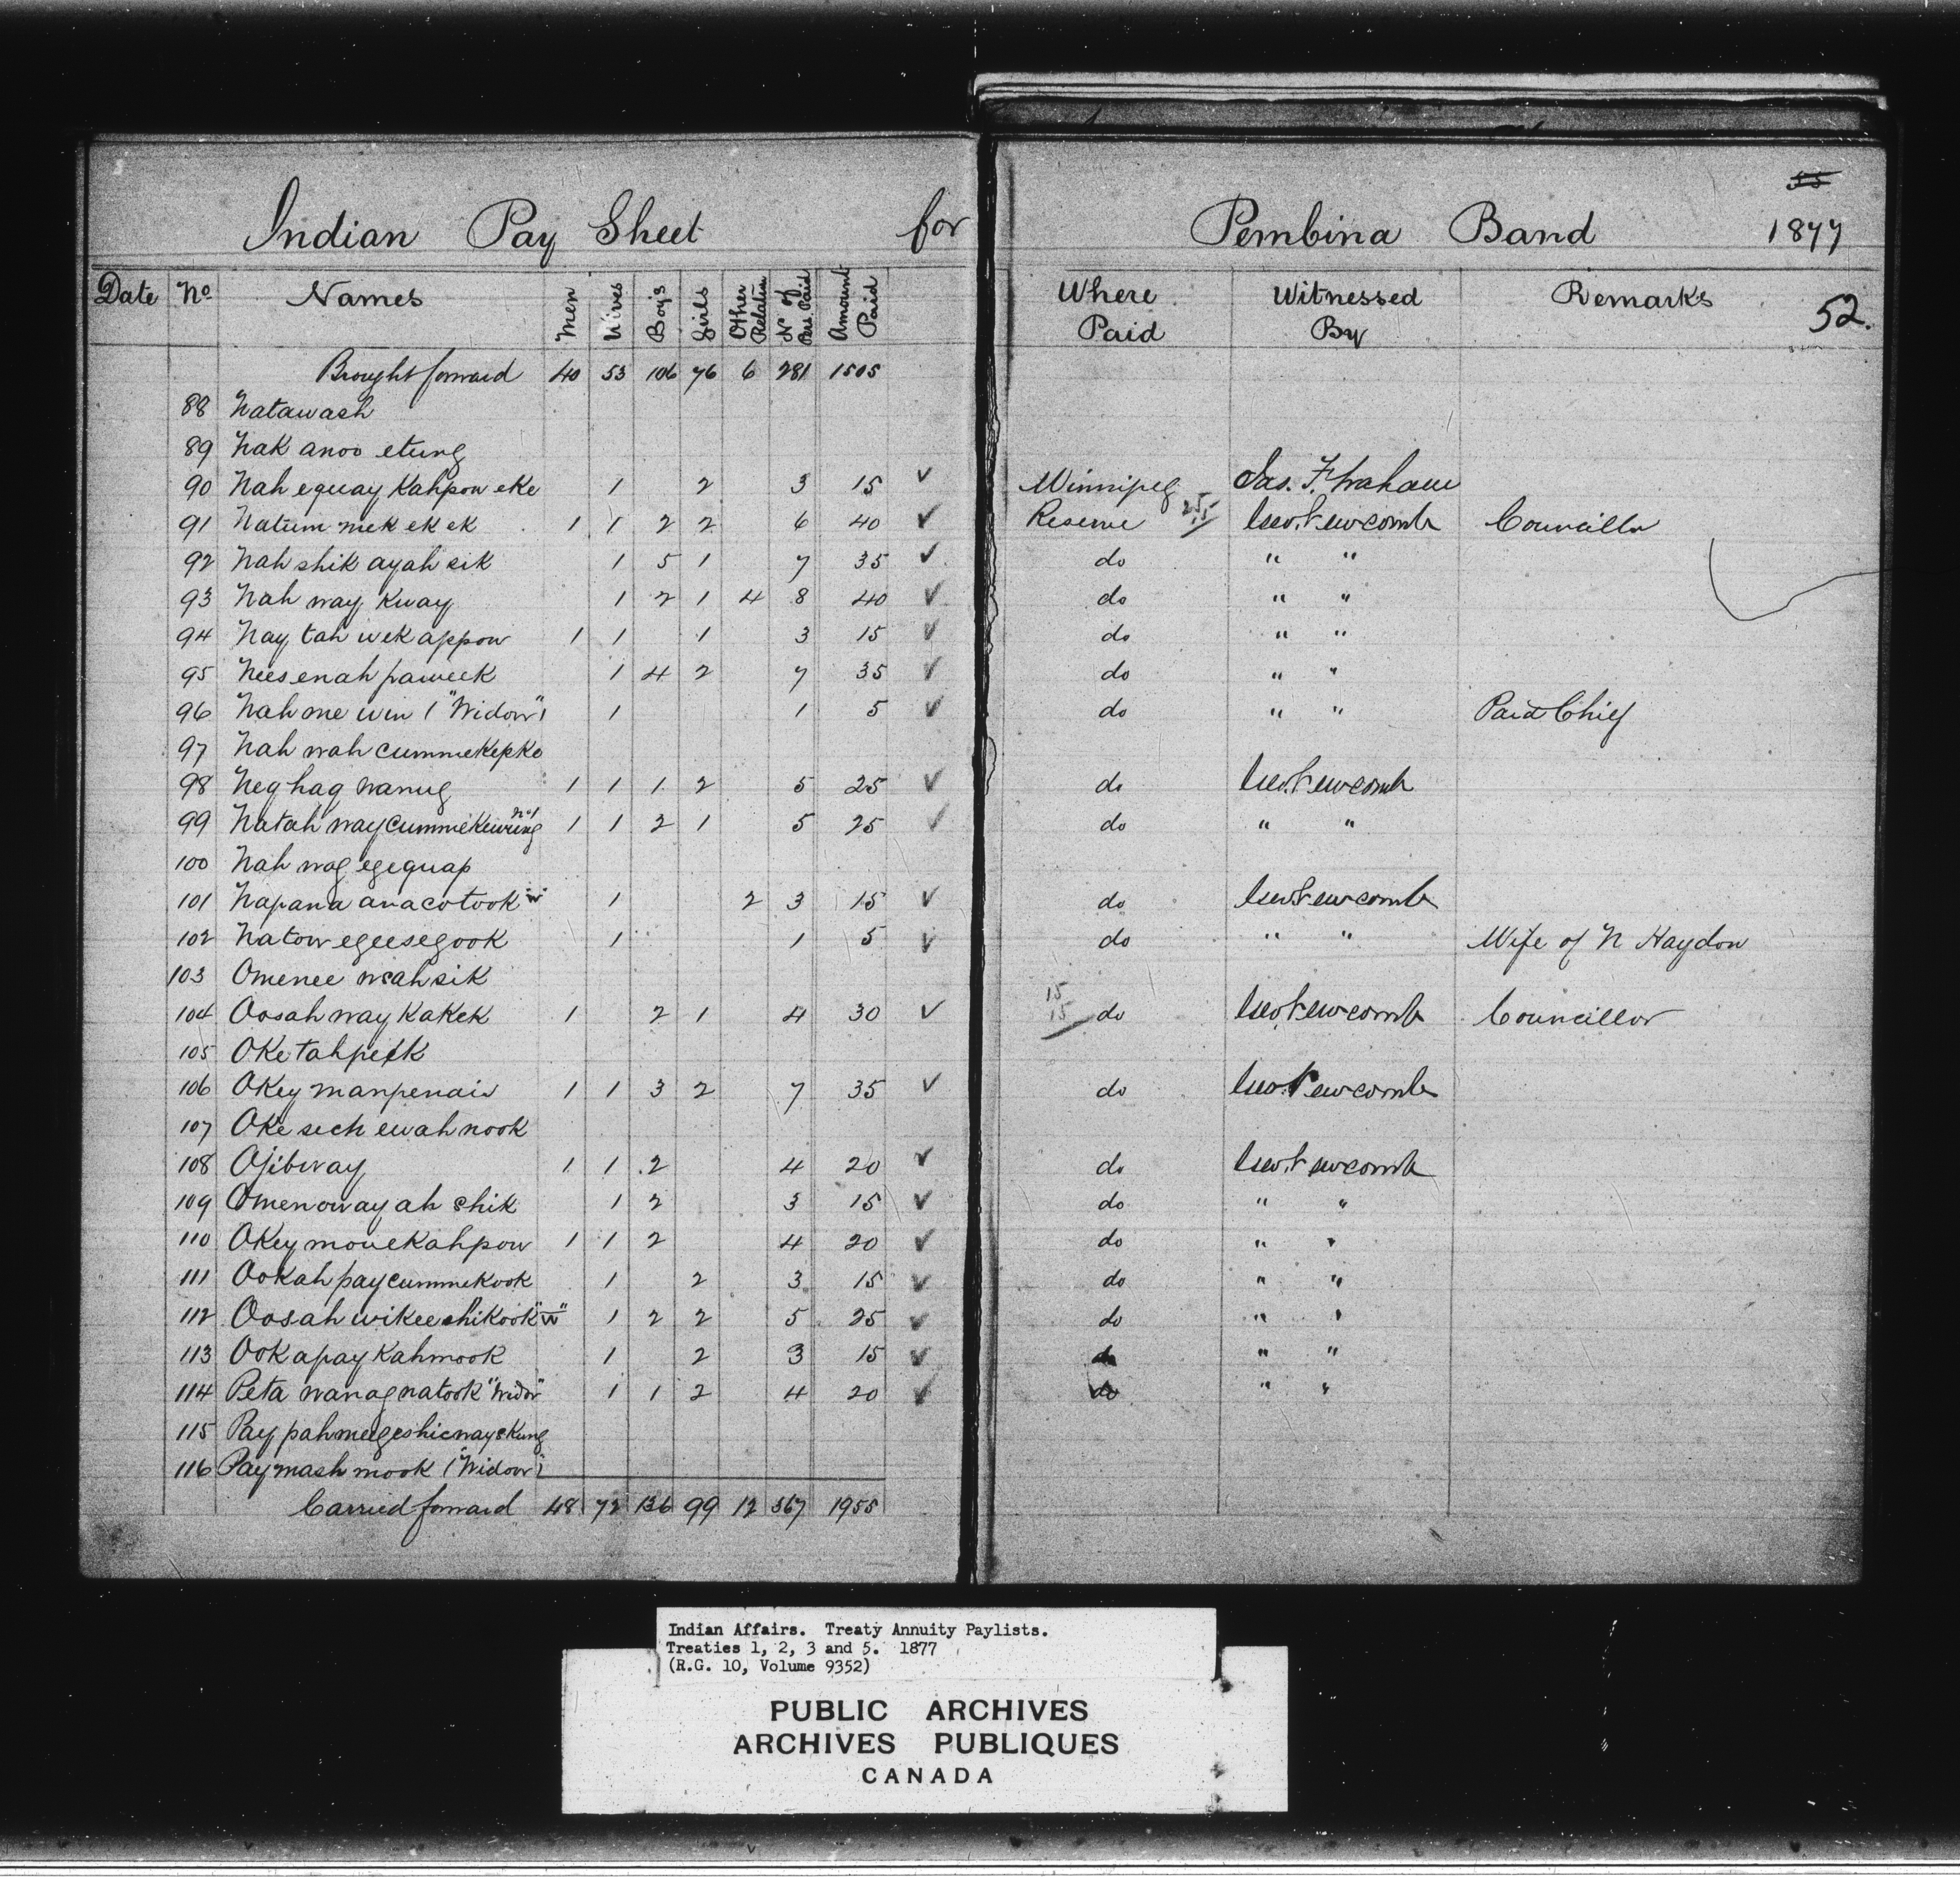 55
Indian Pay Sheet for Pembina Band 1877
52.
Date No Names Men Wives Boys Girls Other Relatin No of Pers. Paid Amount Paid Where Paid Witnessed By Remarks
Brought forward 40 53 106 76 6 281 1505
88 Natawash
89 Nak anoo etung
90 Nah equay Kahpow eke 1 2 3 15 ✓ Winnipeg Jas. F. Graham
91 Natum mek ek ek 1 1 2 2 6 40 ✓ Reserve 25 15 Geo. Newcomb Councillor
92 Nah shik ayah sik 1 5 1 7 35 ✓ do " "
93 Nah way Kway 1 2 1 4 8 40 ✓ do " "
94 Nay tah wek appow 1 1 1 3 15 ✓ do " "
95 Nees enah paweek 1 4 2 7 35 ✓ do " "
96 Nah me win ("Widow") 1 1 5 ✓ do " " Paid Chief
97 Nah wah cummekepko
98 Neg hag wanug 1 1 1 2 5 25 ✓ do Geo. Newcomb
99 Natah way cummekewung No 1 1 1 2 1 5 25 ✓ do " "
100 Nah wag egequap
101 Napana anacotook "W" 1 2 3 15 ✓ do Geo. Newcomb
102 Natow egeesegook 1 1 5 ✓ do " " Wife of N Haydon
103 Omenee wsahsik
104 Oosah way KaKeK 1 2 1 4 30 ✓ 15 15 do Geo. Newcomb Councillor
105 OKe tahpeek
106 OKey manpenais 1 1 3 2 7 35 ✓ do Geo. Newcomb
107 OKe sech ewah nook
108 Ojibway 1 1 2 4 20 ✓ do Geo. Newcomb
109 Omenoway ah shik 1 2 3 15 ✓ do " "
110 OKey mouekahpow 1 1 2 4 20 ✓ do " "
111 Ookah pay cummekook 1 2 3 15 ✓ do " "
112 Oosah wikeeshikook "W" 1 2 2 5 25 ✓ do " "
113 Ook apay Kahmook 1 2 3 15 ✓ do " "
114 Peta wanagnatook "Widow" 1 1 2 4 20 ✓ do " "
115 Pay pahmeegeshicwayskung
116 Paymash mook ("Widow")
Carried forward 48 72 136 99 12 367 1955
Indian Affairs. Treaty Annuity Paylists.
Treaties 1, 2, 3 and 5. 1877
(R.G. 10, Volume 9352)
PUBLIC ARCHIVES
ARCHIVES PUBLIQUES
CANADA